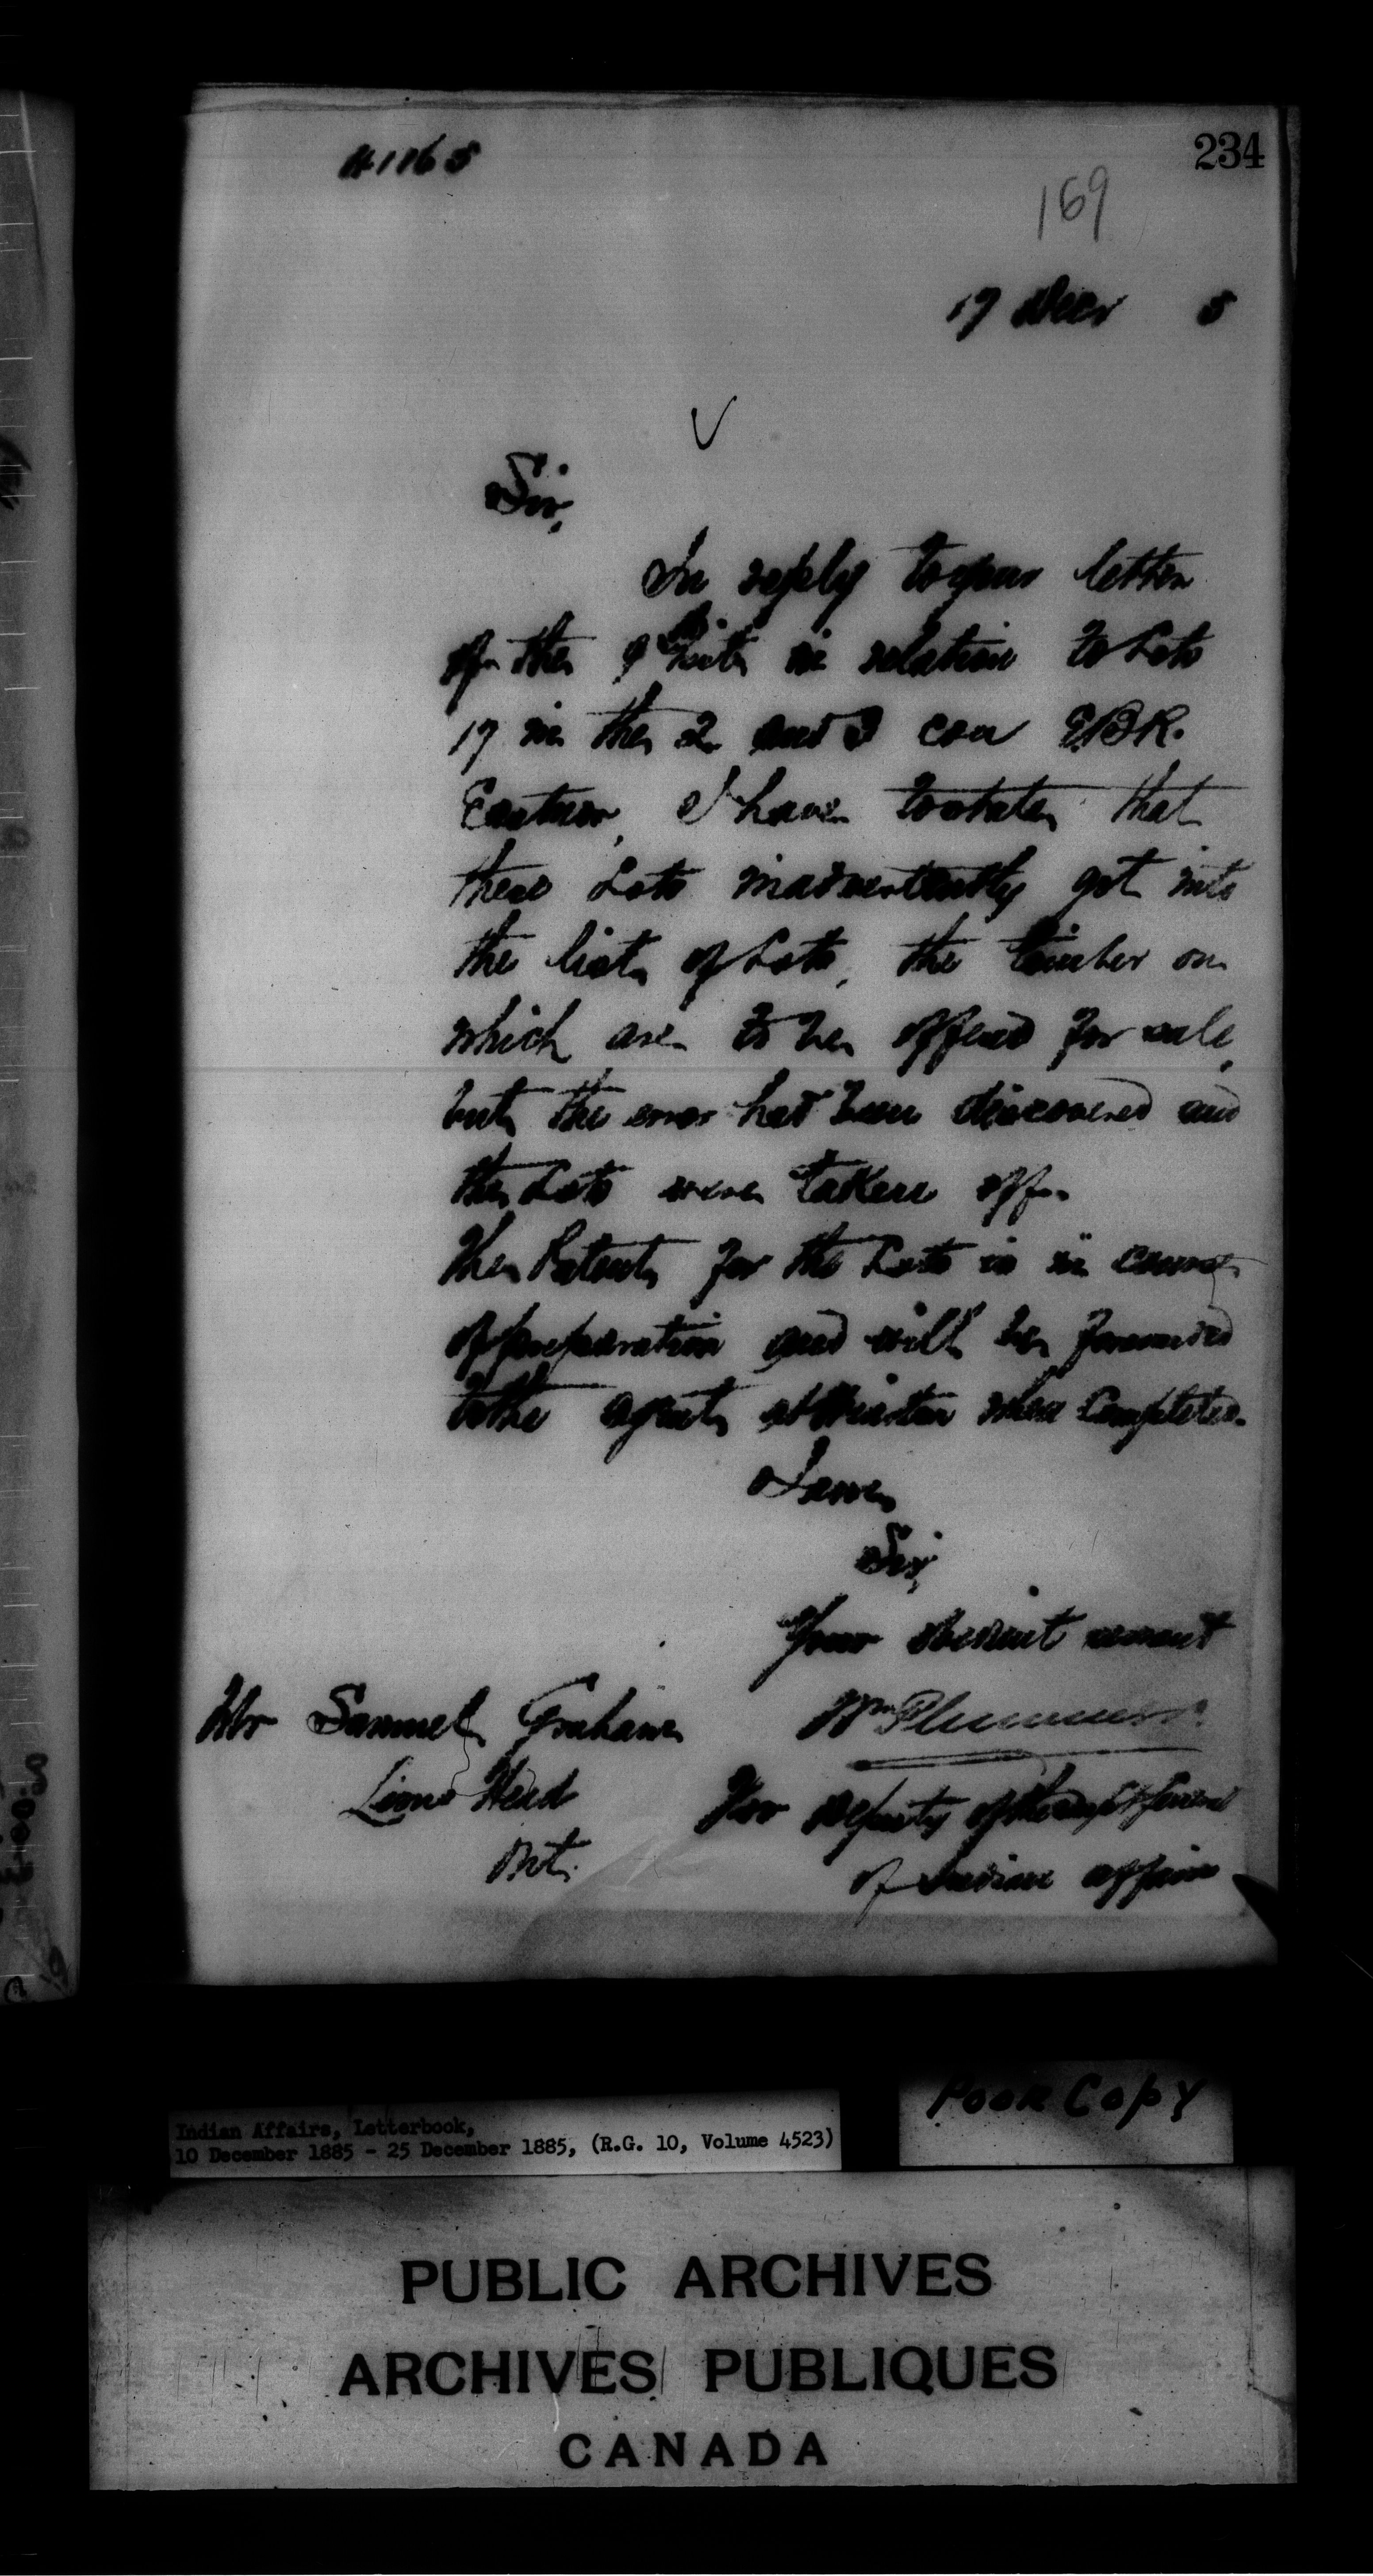 234
169
17 Decr 5
Sir,
In reply to your letter
of the 9th Inst, in relation to Lots
17 in the 2 and 3 con E.B.R.
Eastnor, I have to state, that
these Lots inadvertently got into
the list, of Lots, the timber on
which are to be offered for sale,
but, the error had been discovered and
the Lots were taken off.
The Patent, for the Lots is in course
of preparation and will be forwarded
to the agent, at Wiarton when completed.
I am,
Sir,
Your obedient servant
Wm Plummer
Mr Samuel Graham
Lions Head
Ont.
For Deputy of the Supt General
of Indian affairs
Poor Copy
Indian Affairs, Letterbook,
10 December 1885 - 25 December 1885, (R.G. 10, Volume 4523)
PUBLIC ARCHIVES
ARCHIVES PUBLIQUES
CANADA